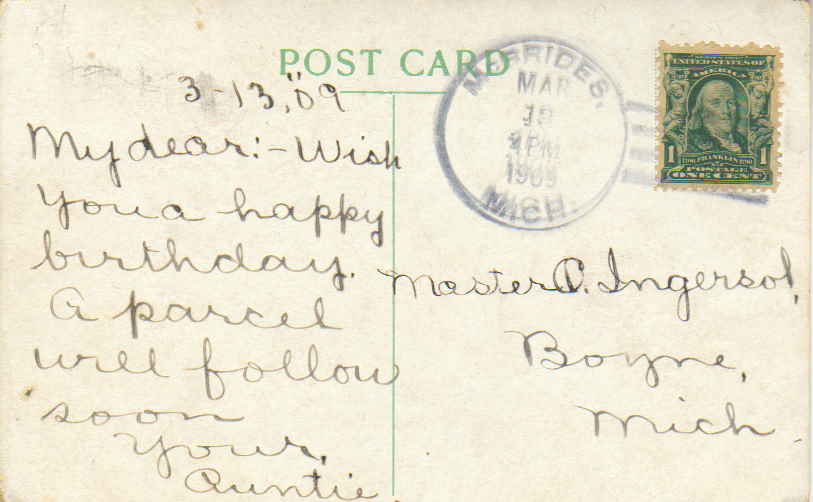 POST CARD
3-13, "09
My dear:- Wish
You a happy
birthday.
A parcel
will follow
soon
Your,
Auntie
McBRIDES,
MAR
PM
1909
MICH.
UNITED STATES OF
AMERICA
FRANKLIN
1 POSTAGE 1
ONE CENT
Master C. Ingersol,
Boyne,
Mich